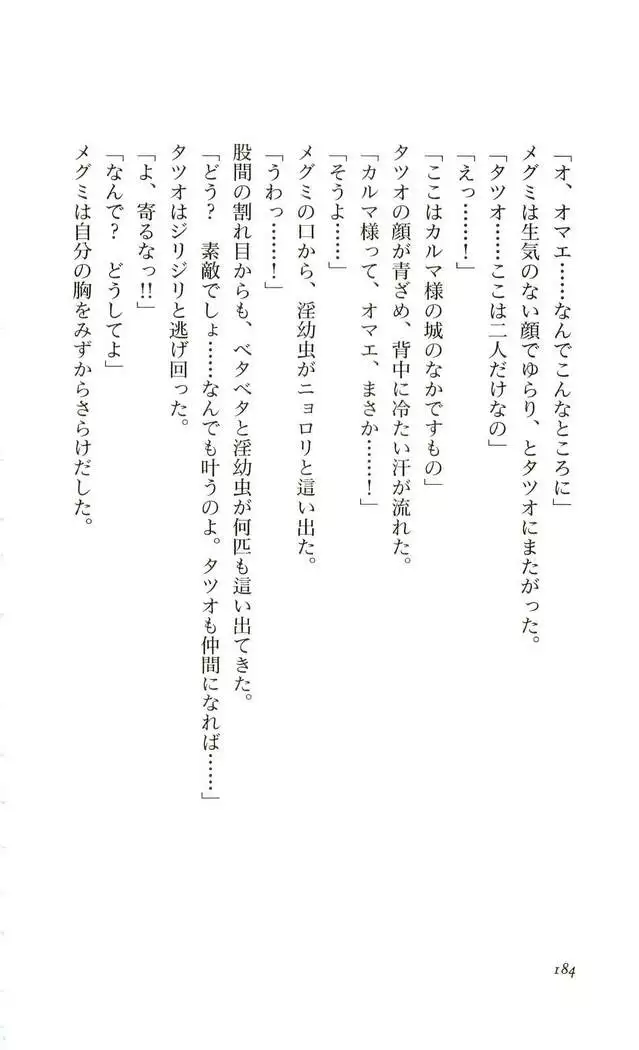 「オ、オマエ……なんでこんなところに」
メグミは生気のない顔でゆらり、とタツオにまたがった。
「タツオ……ここは二人だけなの」
「えっ……！」
「ここはカルマ様の城のなかですもの」
タツオの顔が青ざめ、背中に冷たい汗が流れた。
「カルマ様って、オマエ、まさか……！」
「そうよ……」
メグミの口から、淫幼虫がニョロリと這い出た。
「うわっ……！」
股間の割れ目からも、ベタベタと淫幼虫が何匹も這い出てきた。
「どう？　素敵でしょ……なんでも叶うのよ。タツオも仲間になれば……」
タツオはジリジリと逃げ回った。
「よ、寄るなっ!!」
「なんで？　どうしてよ」
メグミは自分の胸をみずからさらけだした。
184